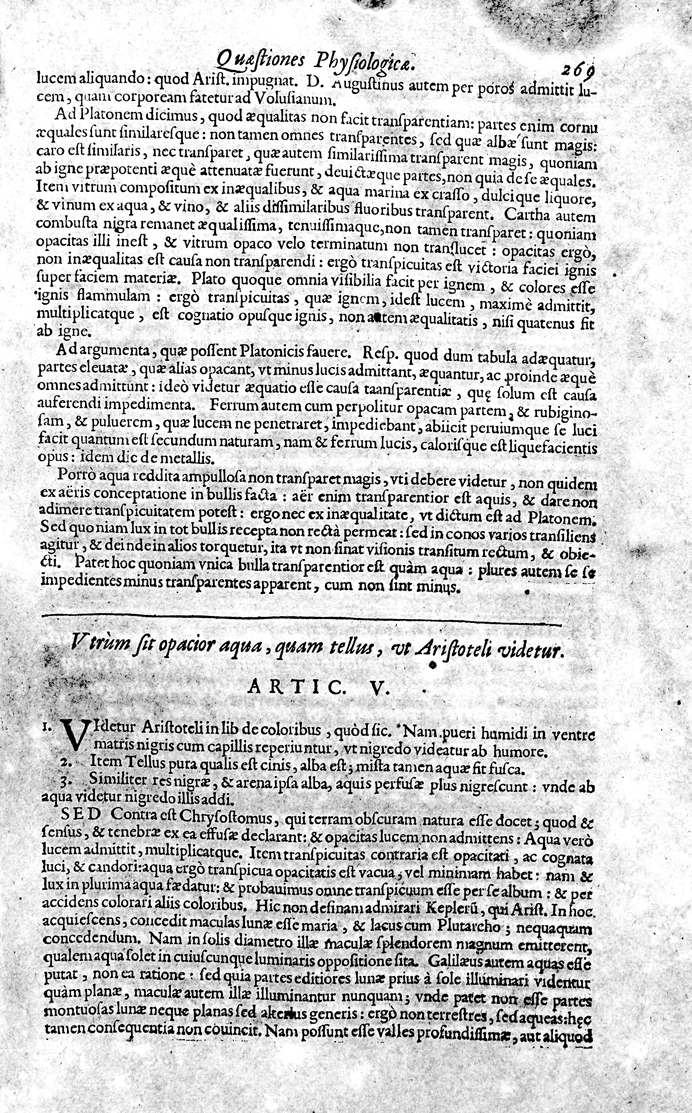 Quæſtiones Phyſiologicæ. 269
lucem aliquando: quod Ariſt. impugnat. D. Auguſtinus autem per poros admittit lu-
cem, quam corpoream fatetur ad Voluſianum.
Ad Platonem dicimus, quod æqualitas non facit tranſparentiam: partes enim cornu
æquales ſunt ſimilareſque: non tamen omnes tranſparentes, ſed quæ albæ ſunt magis:
caro eſt ſimilaris, nec tranſparet, quæ autem ſimilariſſima tranſparent magis, quoniam
ab igne præpotenti æquè attenuatæ fuerunt, deuictæque partes, non quia de ſe æquales.
Item vitrum compoſitum ex inæqualibus, & aqua marina ex craſſo, dulcique liquore,
& vinum ex aqua, & vino, & aliis diſſimilaribus fluoribus tranſparent. Cartha autem
combuſta nigra remanet æqualiſſima, tenuiſſimaque, non tamen tranſparet: quoniam
opacitas illi ineſt, & vitrum opaco velo terminatum non tranſlucet: opacitas ergò,
non inæqualitas eſt cauſa non tranſparendi: ergò tranſpicuitas eſt victoria faciei ignis
ſuper faciem materiæ. Plato quoque omnia viſibilia facit per ignem, & colores eſſe
ignis flammulam: ergò tranſpicuitas, quæ ignem, ideſt lucem, maximè admittit,
multiplicatque, eſt cognatio opuſque ignis, non autem æqualitatis, niſi quatenus fit
ab igne.
Ad argumenta, quæ poſſent Platonicis fauere. Reſp. quod dum tabula adæquatur,
partes eleuatæ, quæ alias opacant, vt minus lucis admittant, æquantur, ac proinde æquè
omnes admittunt: ideò videtur æquatio eſſe cauſa taanſparentiæ, quę ſolum eſt cauſa
auferendi impedimenta. Ferrum autem cum perpolitur opacam partem, & rubigino-
ſam, & puluerem, quæ lucem ne penetraret, impediebant, abiicit peruiumque ſe luci
facit quantum eſt ſecundum naturam, nam & ferrum lucis, caloriſque eſt liquefacientis
opus: idem dic de metallis.
Porrò aqua reddita ampulloſa non tranſparet magis, vti debere videtur, non quidem
ex aëris conceptatione in bullis facta: aër enim tranſparentior eſt aquis, & dare non
adimere tranſpicuitatem poteſt: ergo nec ex inæqualitate, vt dictum eſt ad Platonem.
Sed quoniam lux in tot bullis recepta non rectà permeat: ſed in conos varios tranſiliens
agitur, & deinde in alios torquetur, ita vt non ſinat viſionis tranſitum rectum, & obie-
cti. Patet hoc quoniam vnica bulla tranſparentior eſt quàm aqua: plures autem ſe ſe
impedientes minus tranſparentes apparent, cum non ſint minus.
Vtrùm ſit opacior aqua, quam tellus, vt Ariſtoteli videtur.
ARTIC. V.
1. VIdetur Ariſtoteli in lib de coloribus, quòd ſic. Nam pueri humidi in ventre
matris nigris cum capillis reperiuntur, vt nigredo videatur ab humore.
2. Item Tellus pura qualis eſt cinis, alba eſt; miſta tamen aquæ fit fuſca.
3. Similiter res nigræ, & arena ipſa alba, aquis perfuſæ plus nigreſcunt: vnde ab
aqua videtur nigredo illis addi.
SED Contra eſt Chryſoſtomus, qui terram obſcuram natura eſſe docet; quod &
ſenſus, & tenebræ ex ea effuſæ declarant: & opacitas lucem non admittens: Aqua verò
lucem admittit, multiplicatque. Item tranſpicuitas contraria eſt opacitati, ac cognata
luci, & candori: aqua ergò tranſpicua opacitatis eſt vacua, vel minimam habet: nam &
lux in plurima aqua fædatur: & probauimus omne tranſpicuum eſſe per ſe album: & per
accidens colorari aliis coloribus. Hic non deſinam admirari Keplerũ, qui Ariſt. In hoc
acquieſcens, concedit maculas lunæ eſſe maria, & lacus cum Plutarcho; nequaquam
concedendum. Nam in ſolis diametro illæ maculæ ſplendorem magnum emitterent,
qualem aqua ſolet in cuiuſcunque luminaris oppoſitione ſita. Galilæus autem aquas eſſe
putat, non ea ratione: ſed quia partes editiores lunæ prius à ſole illuminari videntur
quàm planæ, maculæ autem illæ illuminantur nunquam; vnde patet non eſſe partes
montuoſas lunæ neque planas ſed alterius generis: ergò non terreſtres, ſed aqueas: hęc
tamen conſequentia non conuincit. Nam poſſunt eſſe valles profundiſſimæ, aut aliquod